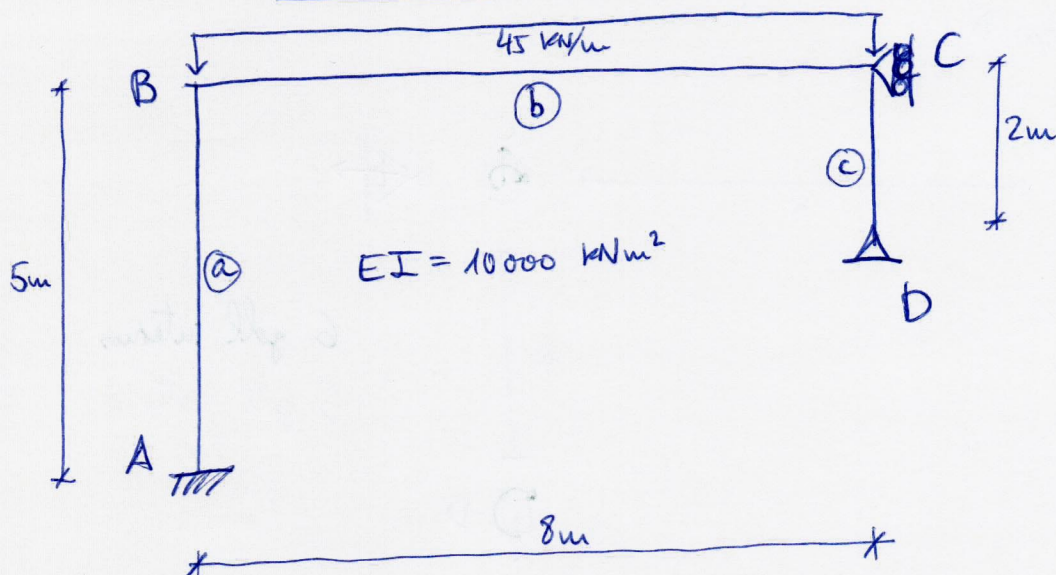 45 kN/m
B
C
b
2m
c
5m
a
EI = 10000 kNm²
D
A
8m